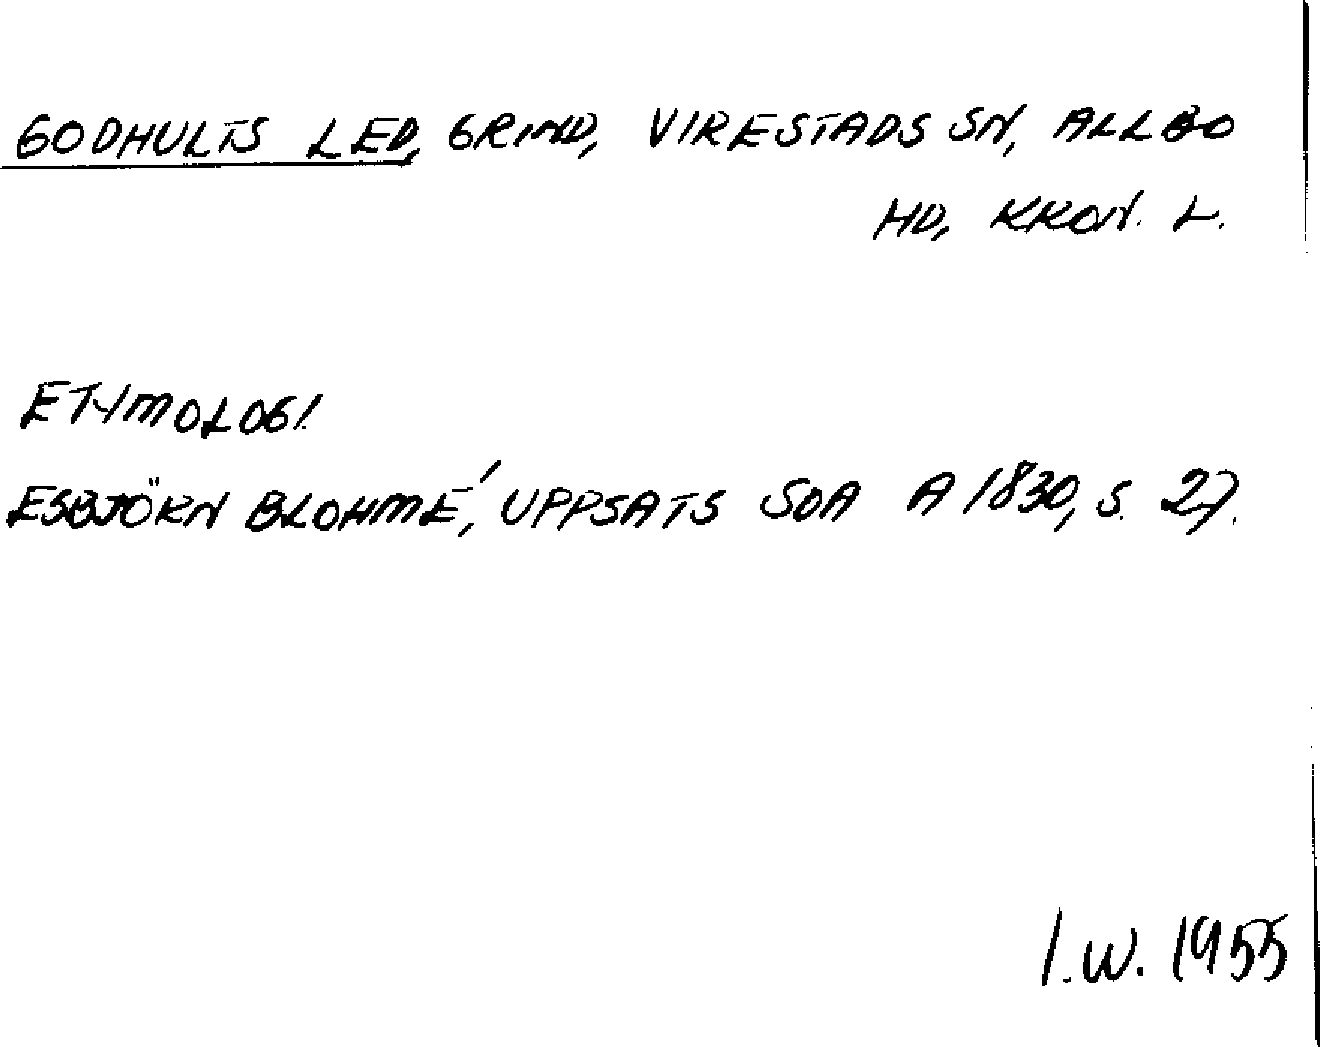 GODHULTS LED, GRIND, VIRESTADS SN, ALLBO
HD, KRON. L.
ETYMOLOGI.
ESBJÖRN BLOHMÉ, UPPSATS SOA A 1830, S. 27.
I.W. 1955